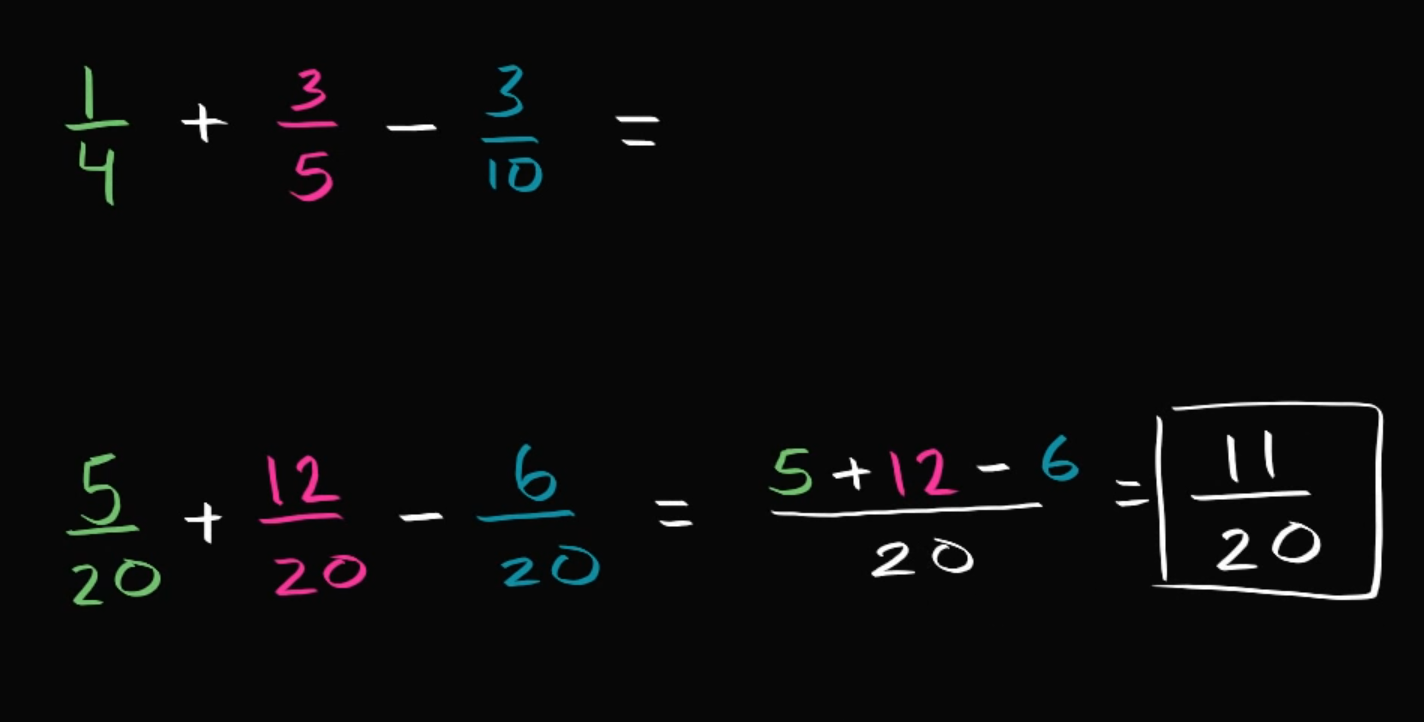 1/4 + 3/5 − 3/10 =
5/20 + 12/20 − 6/20 = (5 + 12 − 6)/20 = 11/20